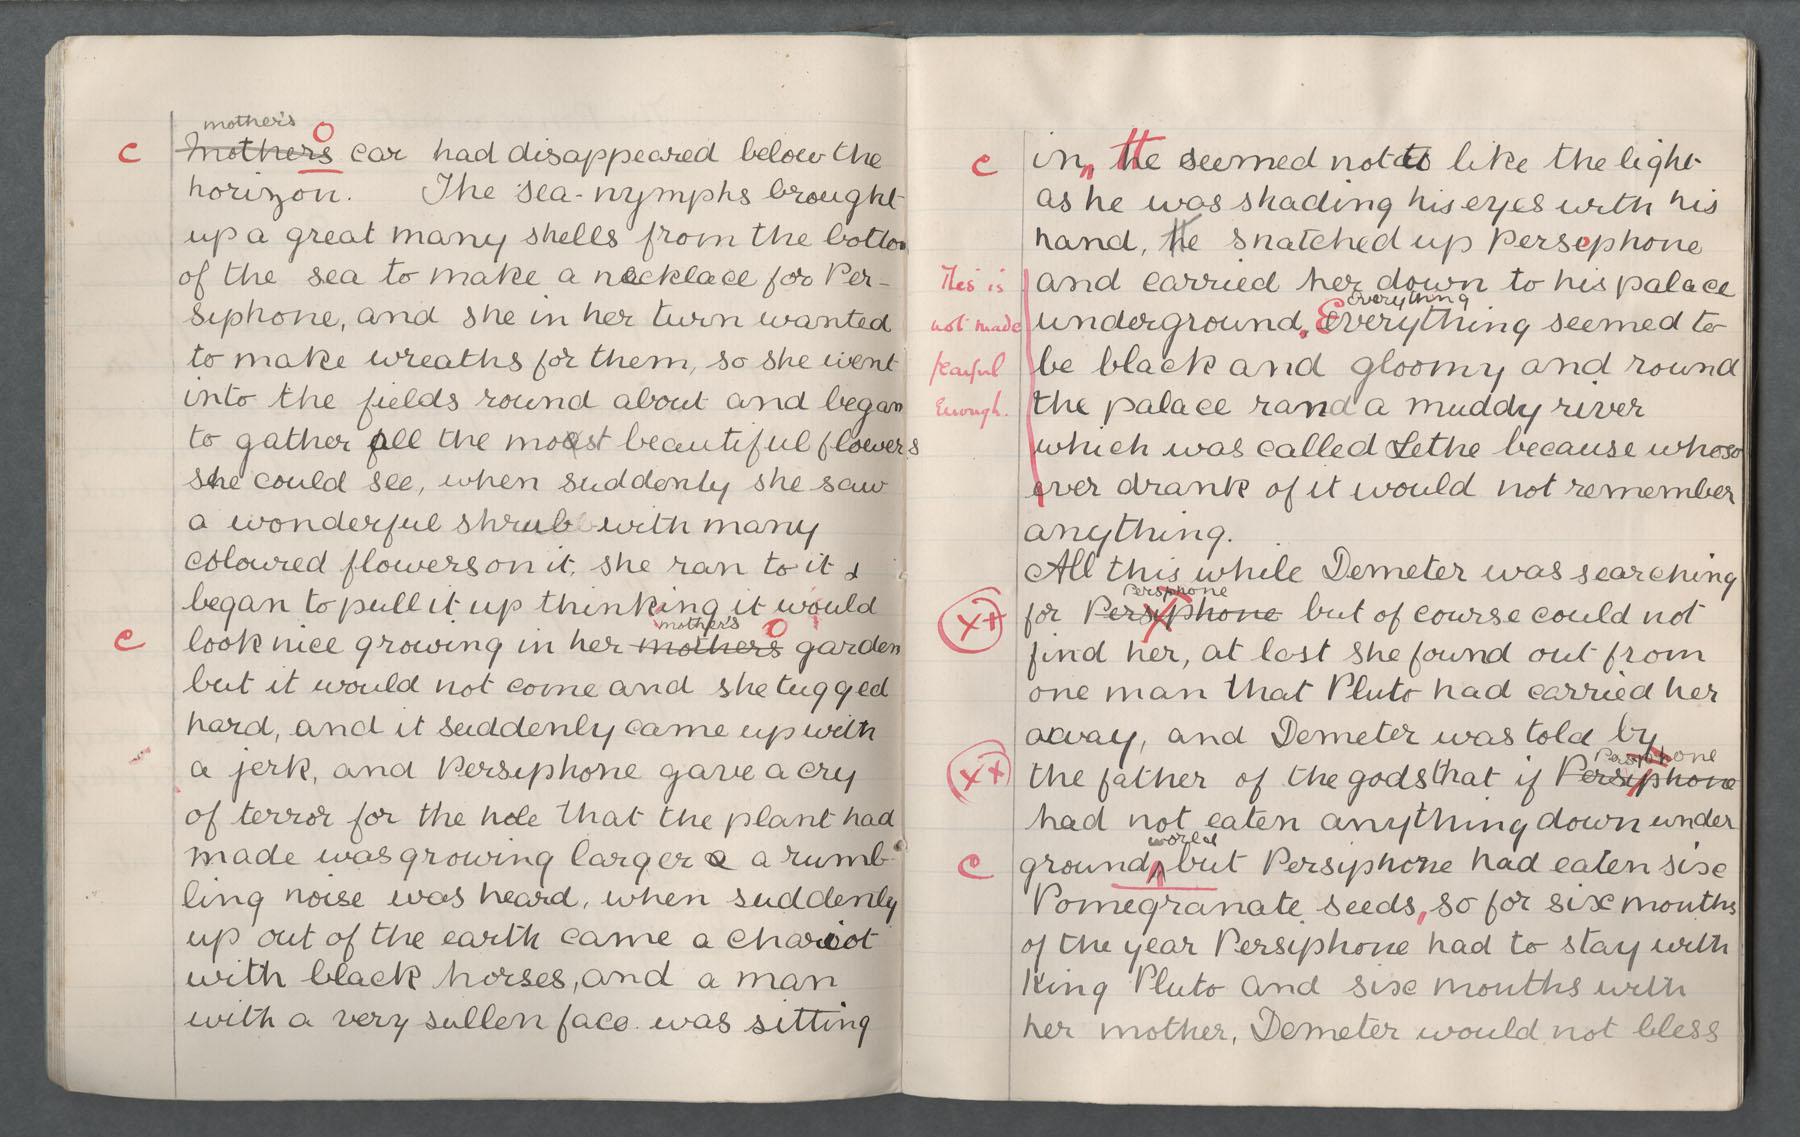 mother's
c Mothers car had disappeared below the
horizon. The sea-nymphs brought
up a great many shells from the bottom
of the sea to make a necklace for Per-
siphone, and she in her turn wanted
to make wreaths for them, so she went
into the fields round about and began
to gather all the most beautiful flowers
she could see, when suddenly she saw
a wonderful shrub with many
coloured flowers on it, she ran to it &
began to pull it up thinking it would
mother's
c look nice growing in her mothers garden
but it would not come and she tugged
hard, and it suddenly came up with
a jerk, and Persiphone gave a cry
of terror for the hole that the plant had
made was growing larger & a rumb-
ling noise was heard, when suddenly
up out of the earth came a chariot
with black horses, and a man
with a very sullen face was sitting
c in, He seemed not to like the light
as he was shading his eyes with his
hand, He snatched up Persephone
and carried her down to his palace
everything
underground. Everything seemed to
be black and gloomy and round
the palace ran a muddy river
which was called Lethe because whoso
ever drank of it would not remember
anything.
This is
not made
fearful
enough.
All this while Demeter was searching
Persphone
x+ for Persiphone but of course could not
find her, at last she found out from
one man that Pluto had carried her
away, and Demeter was told by
x+ the father of the gods that if Persiphone
had not eaten anything down under
world
c ground, but Persiphone had eaten six
Pomegranate seeds, so for six months
of the year Persiphone had to stay with
King Pluto and six months with
her mother, Demeter would not bless